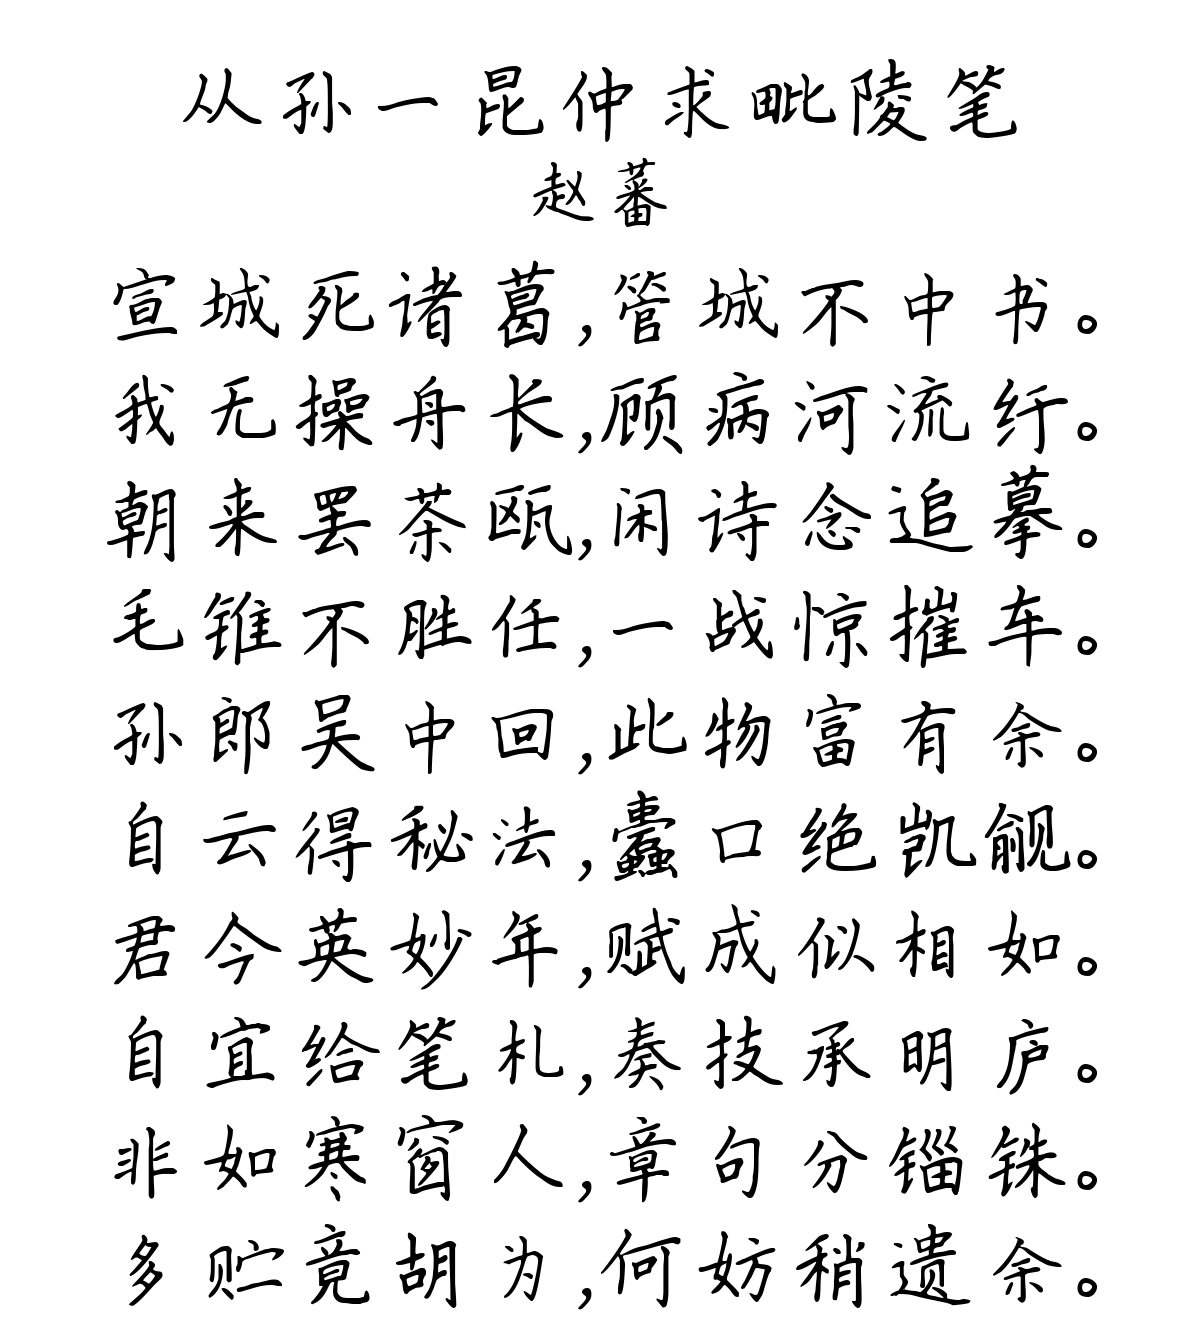 从孙一昆仲求毗陵笔
赵蕃
宣城死诸葛,管城不中书。
我无操舟长,顾病河流纡。
朝来罢茶瓯,闲诗念追摹。
毛锥不胜任,一战惊摧车。
孙郎吴中回,此物富有余。
自云得秘法,蠹口绝凯觎。
君今英妙年,赋成似相如。
自宜给笔札,奏技承明庐。
非如寒窗人,章句分锱铢。
多贮竟胡为,何妨稍遗余。